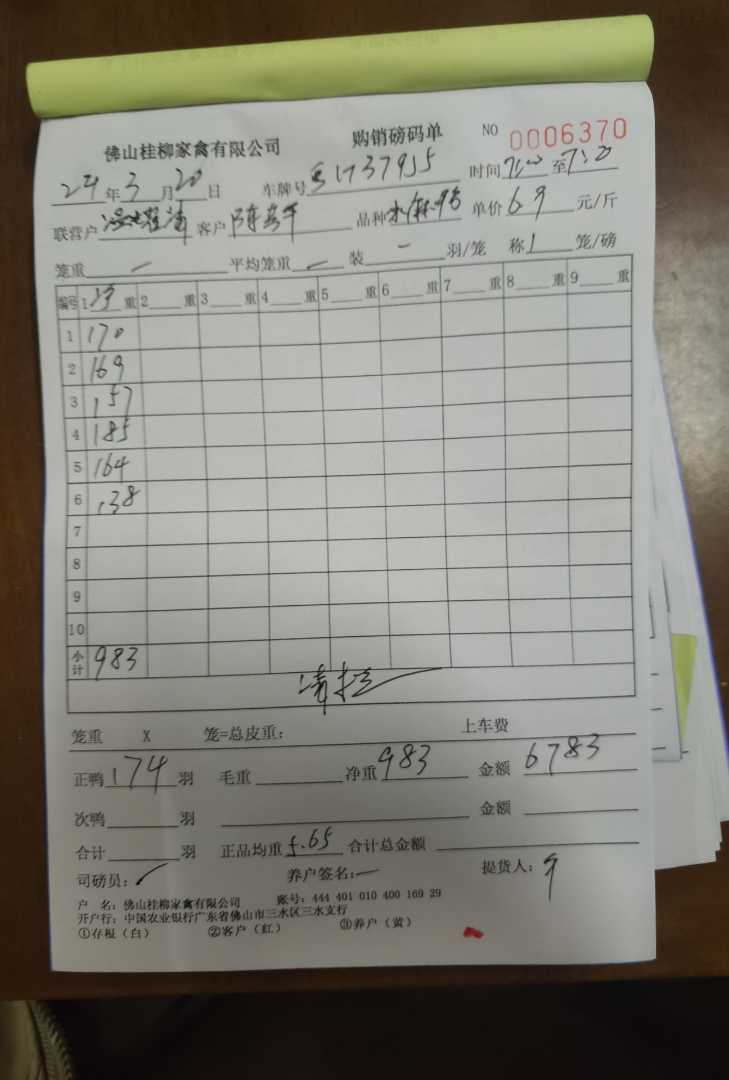 佛山桂柳家禽有限公司 购销磅码单 NO 0006370
24年3月20日 车牌号 1737955 时间7:00至7:20
联营户 客户 品种 单价6.9元/斤
笼重 — 平均笼重 — 装 — 羽/笼 称1笼/磅
编号 1 29 重 2 重 3 重 4 重 5 重 6 重 7 重 8 重 9 重
1 170
2 169
3 157
4 185
5 164
6 138
7
8
9
10
小计 983
请拉
笼重 X 笼=总皮重: 上车费
正鸭174羽 毛重 净重983 金额6783
次鸭 羽 金额
合计 羽 正品均重5.65 合计总金额
司磅员: 养户签名:— 提货人:
户 名: 佛山桂柳家禽有限公司 账号: 444 401 010 400 169 29
开户行: 中国农业银行广东省佛山市三水区三水支行
①存根(白) ②客户(红) ③养户(黄)